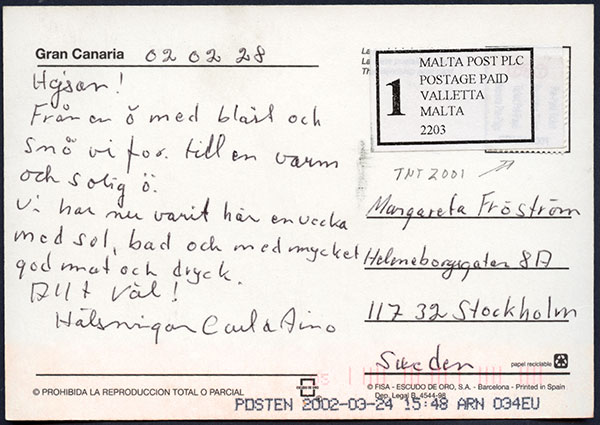 Gran Canaria 02 02 28
Hejsan!
Från en ö med blåst och
snö vi for till en varm
och solig ö.
Vi har nu varit här en vecka
med sol, bad och med mycket
god mat och dryck.
Allt väl!
Hälsningar Carl & Aino
1
MALTA POST PLC
POSTAGE PAID
VALLETTA
MALTA
2203
TNT 2001
Margareta Fröström
Heleneborgsgatan 8A
117 32 Stockholm
Sweden
papel reciclable
© PROHIBIDA LA REPRODUCCION TOTAL O PARCIAL
ESCUDO DE ORO
© FISA - ESCUDO DE ORO, S.A. - Barcelona - Printed in Spain
Dep. Legal B. 4544-98
POSTEN 2002-03-24 15:48 ARN 034EU